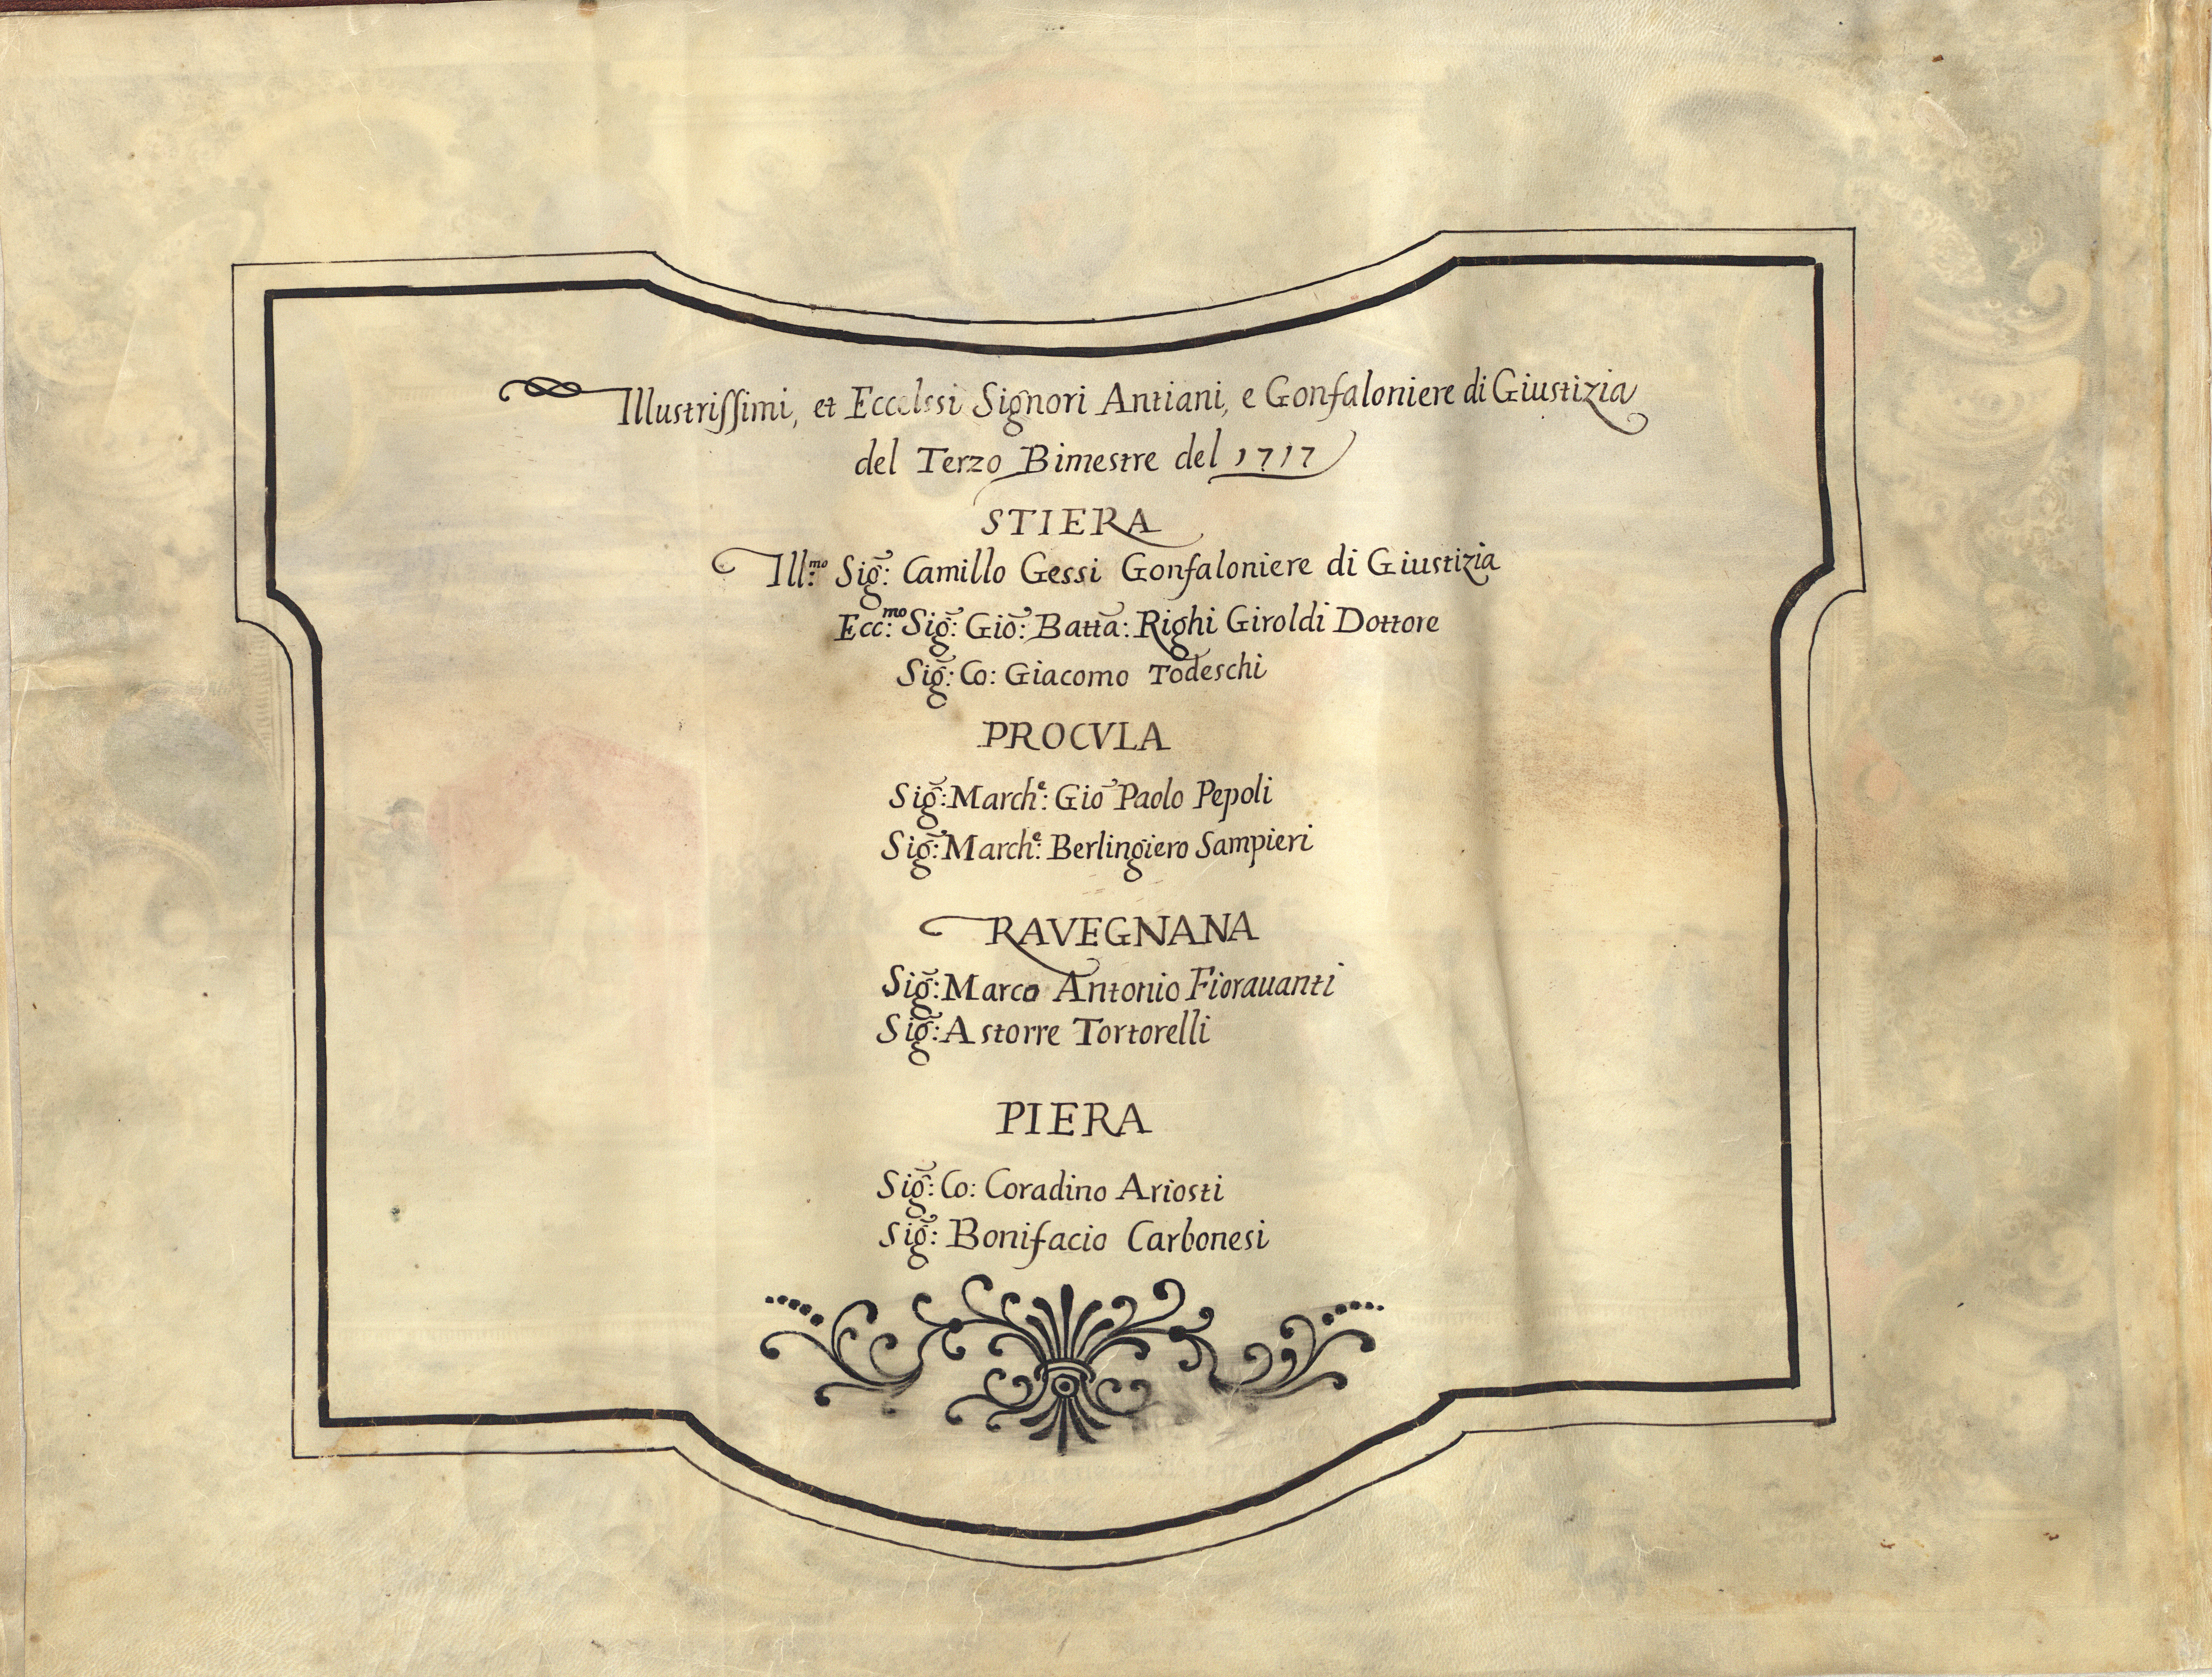 Illustrissimi, et Eccelssi Signori Antiani, e Gonfaloniere di Giustizia
del Terzo Bimestre del 1717
STIERA
Ill:mo Sig̃: Camillo Gessi Gonfaloniere di Giustizia
Ecc:mo Sig̃: Giõ: Battã: Righi Giroldi Dottore
Sig̃: Co: Giacomo Todeschi
PROCVLA
Sig̃: March:e Giõ Paolo Pepoli
Sig̃: March:e Berlingiero Sampieri
RAVEGNANA
Sig̃: Marco Antonio Fiorauanti
Sig̃: Astorre Tortorelli
PIERA
Sig̃: Co: Coradino Ariosti
Sig̃: Bonifacio Carbonesi